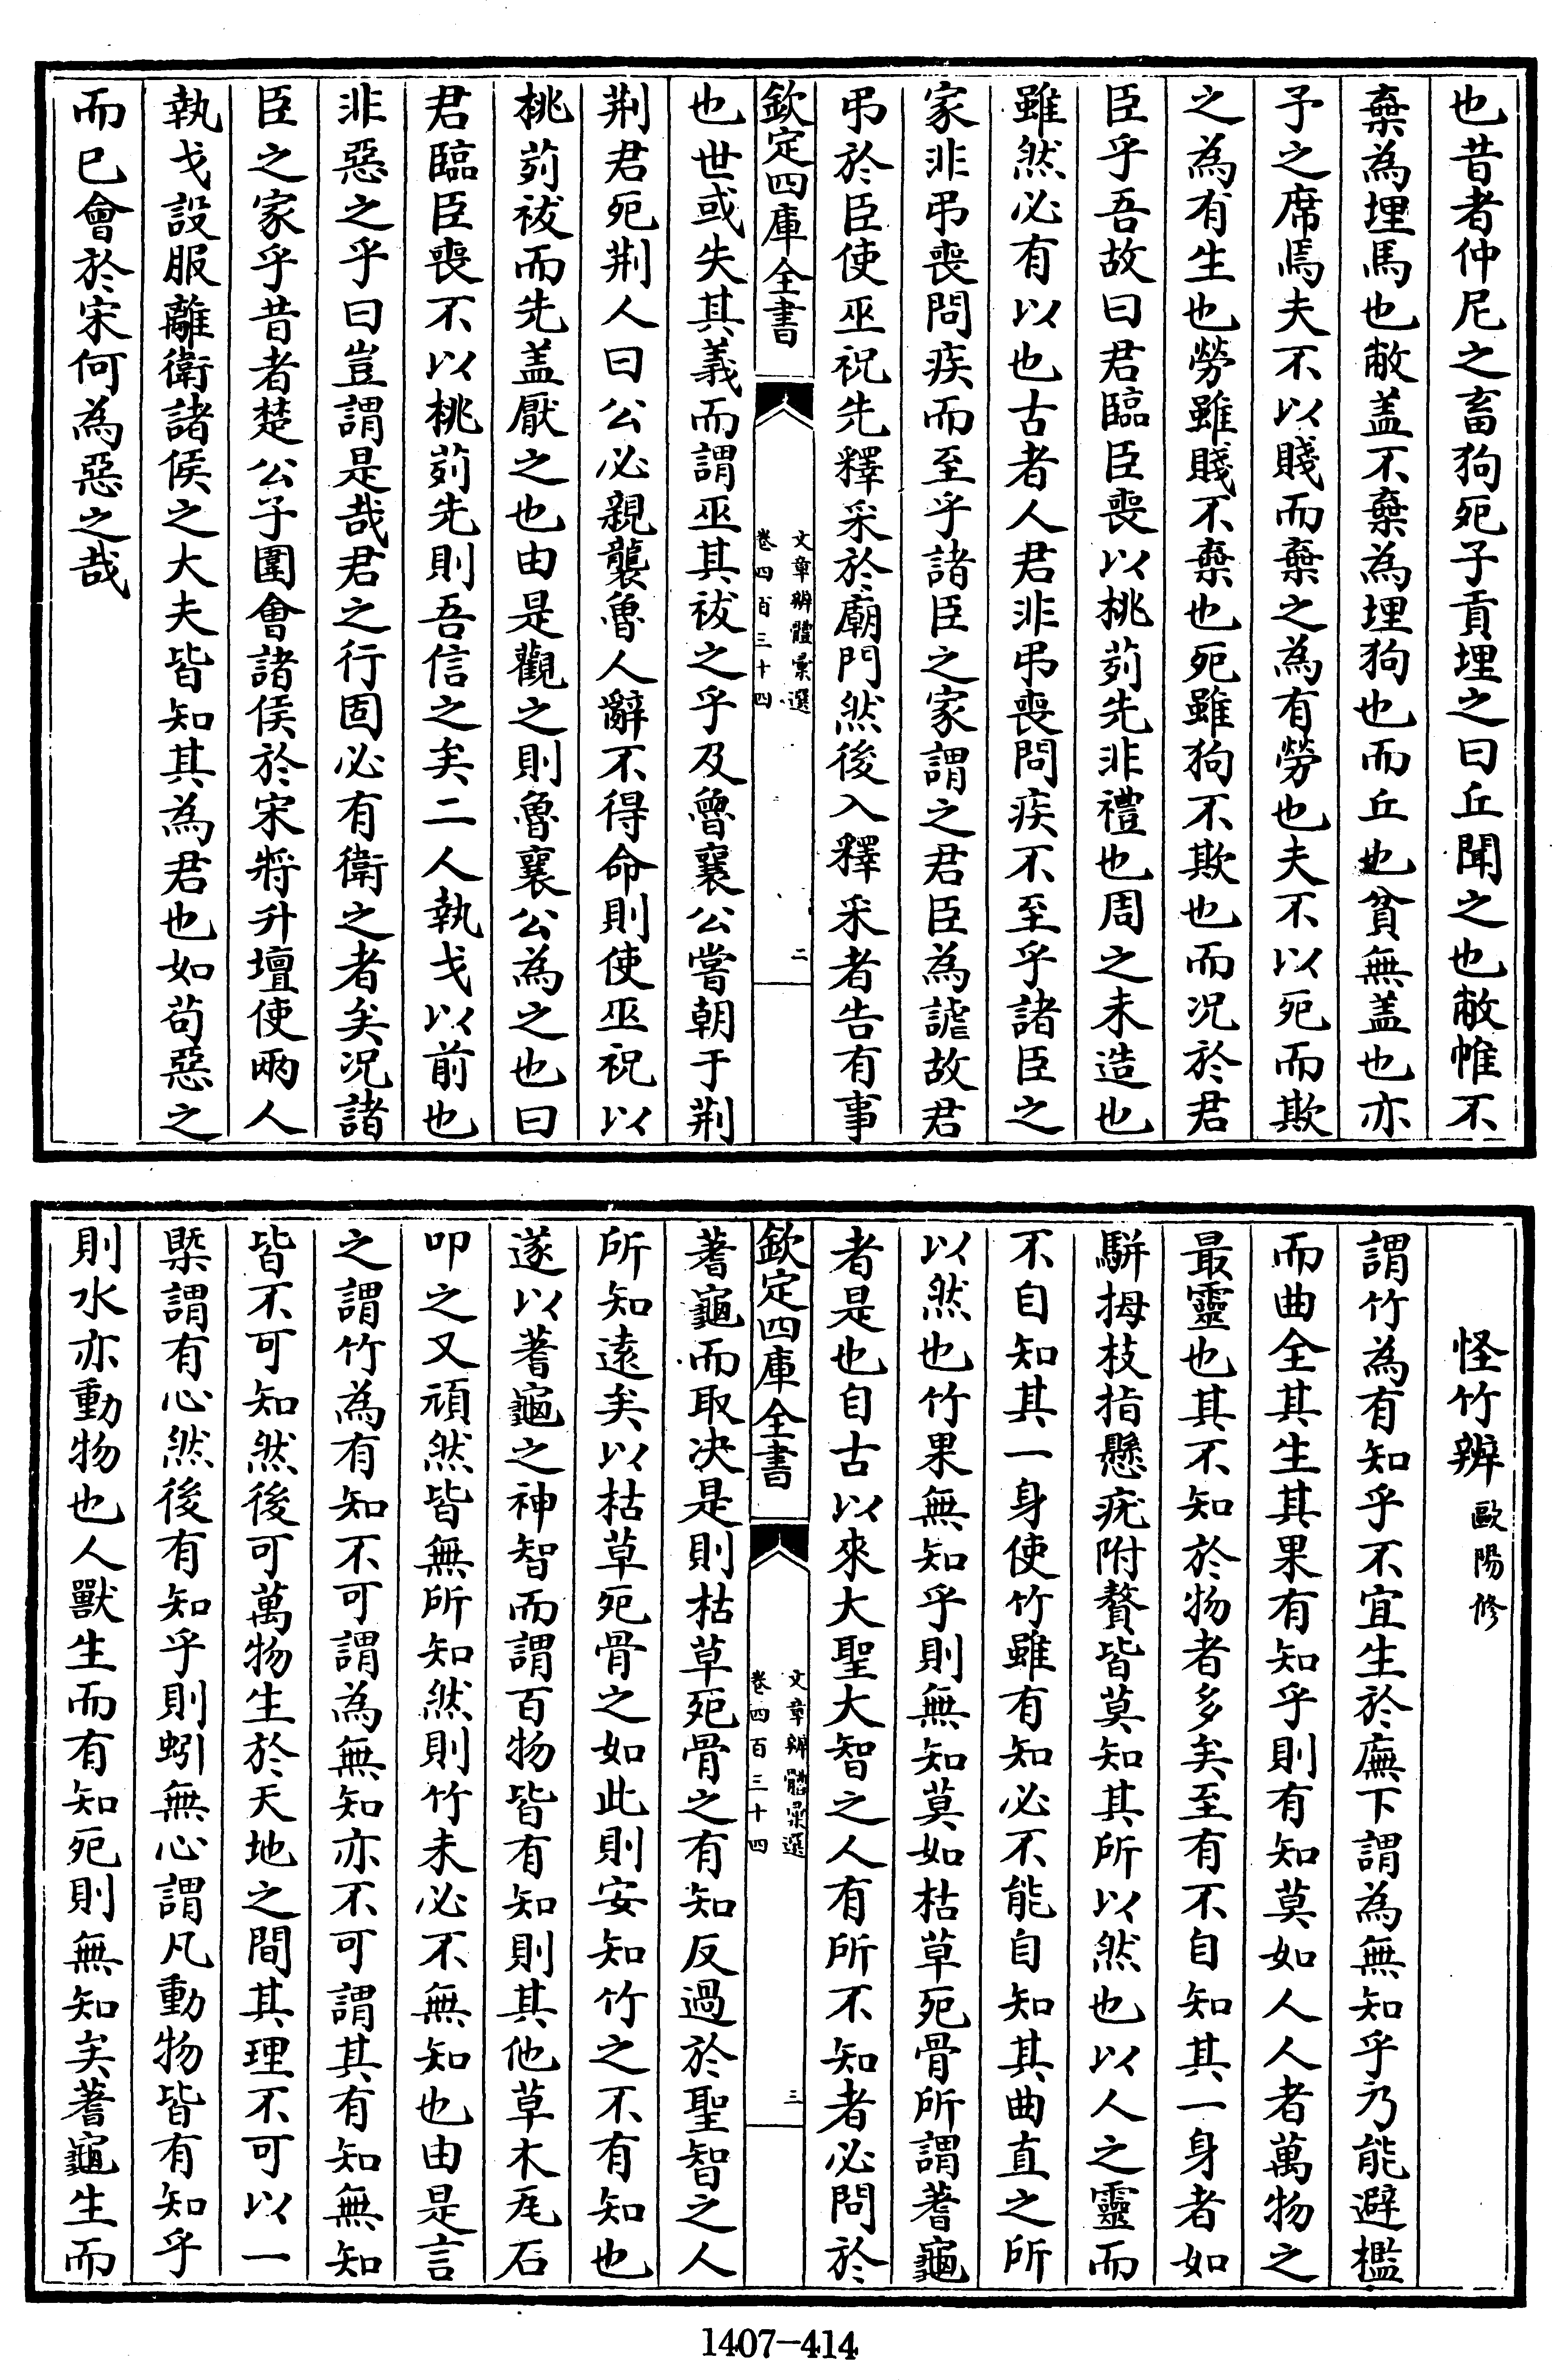 也昔者仲尼之畜狗死子貢埋之曰丘聞之也敝帷不
棄為埋馬也敝盖不棄為埋狗也而丘也貧無盖也亦
予之席焉夫不以賤而棄之為有勞也夫不以死而欺
之為有生也勞雖賤不棄也死雖狗不欺也而况於君
臣乎吾故曰君臨臣喪以桃茢先非禮也周之未造也
雖然必有以也古者人君非弔喪問疾不至乎諸臣之
家非弔喪問疾而至乎諸臣之家謂之君臣為謔故君
弔於臣使巫祝先釋采於廟門然後入釋采者告有事
欽定四庫全書
文章辨體彚選
卷四百三十四
二
也世或失其義而謂巫其祓之乎及魯襄公嘗朝于荆
荆君死荆人曰公必親襲魯人辭不得命則使巫祝以
桃茢祓而先盖厭之也由是觀之則魯襄公為之也曰
君臨臣喪不以桃茢先則吾信之矣二人執戈以前也
非惡之乎曰豈謂是哉君之行固必有衛之者矣况諸
臣之家乎昔者楚公子圍會諸侯於宋將升壇使兩人
執戈設服離衛諸侯之大夫皆知其為君也如苟惡之
而已會於宋何為惡之哉
怪竹辨 歐陽修
謂竹為有知乎不宜生於廡下謂為無知乎乃能避檻
而曲全其生其果有知乎則有知莫如人人者萬物之
最靈也其不知於物者多矣至有不自知其一身者如
駢拇枝指懸疣附贅皆莫知其所以然也以人之靈而
不自知其一身使竹雖有知必不能自知其曲直之所
以然也竹果無知乎則無知莫如枯草死骨所謂蓍龜
者是也自古以來大聖大智之人有所不知者必問於
欽定四庫全書
文章辨體彚選
卷四百三十四
三
蓍龜而取决是則枯草死骨之有知反過於聖智之人
所知遠矣以枯草死骨之如此則安知竹之不有知也
遂以蓍龜之神智而謂百物皆有知則其他草木瓦石
叩之又頑然皆無所知然則竹未必不無知也由是言
之謂竹為有知不可謂為無知亦不可謂其有知無知
皆不可知然後可萬物生於天地之間其理不可以一
槩謂有心然後有知乎則蚓無心謂凡動物皆有知乎
則水亦動物也人獸生而有知死則無知矣蓍龜生而
1407-414